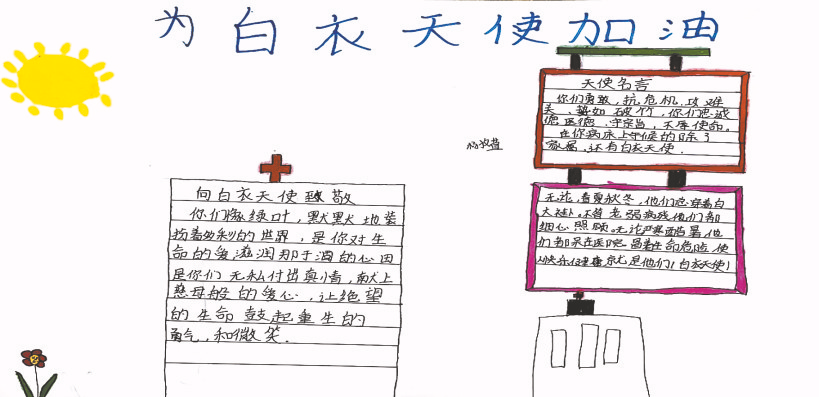 为白衣天使加油
天使名言
你们勇敢，抗危机，攻难
关、势如破竹，你们忠诚
德医德，守宗旨，不辱使命。
在你病床上守候的除了
家属，还有白衣天使．
向白衣天使致敬
你们像绿叶，默默地装
扮着多彩的世界，是你对生
命的爱滋润那干涸的心田
是你们无私付出真情，献上
慈母般的爱心，让绝望
的生命鼓起重生的
勇气，和微笑．
无论，春夏秋冬，他们总穿着白
大褂，不管老弱病残他们都
细心照顾．无论严寒酷暑他
们都呆在医院冒着生命危险使
人快乐健康尤是他们！白衣天使！